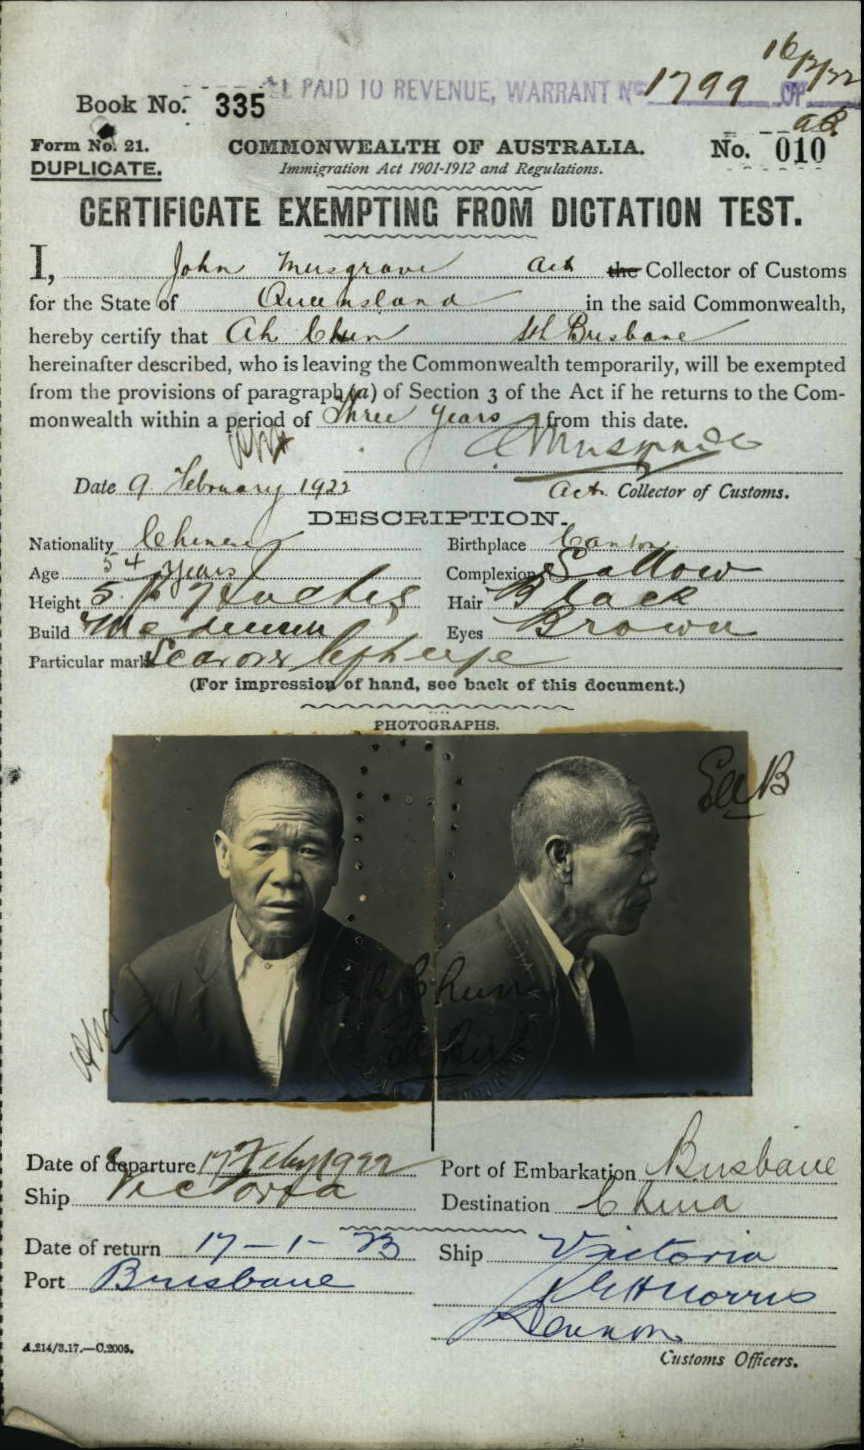 16/2/22
PAID TO REVENUE, WARRANT No 1799 OF
Book No. 335
Form No. 21. COMMONWEALTH OF AUSTRALIA. No. 010
DUPLICATE. Immigration Act 1901-1912 and Regulations.
CERTIFICATE EXEMPTING FROM DICTATION TEST.
I, John Musgrave Act the Collector of Customs
for the State of Queensland in the said Commonwealth,
hereby certify that Ah Chun Sth Brisbane
hereinafter described, who is leaving the Commonwealth temporarily, will be exempted
from the provisions of paragraph (a) of Section 3 of the Act if he returns to the Com-
monwealth within a period of Three years from this date.
J Musgrave
Date 9 February 1922 Act. Collector of Customs.
DESCRIPTION.
Nationality Chinese Birthplace Canton
Age 54 years Complexion Sallow
Height 5 ft 7 Inches Hair Black
Build Medium Eyes Brown
Particular marks Scar over left eye
(For impression of hand, see back of this document.)
PHOTOGRAPHS.
Ah Chun
Date of departure 17 Feby 1922 Port of Embarkation Brisbane
Ship Victoria Destination China
Date of return 17-1-23 Ship Victoria
Port Brisbane
Norris
Lennon
A.214/3.17.—C.2005.
Customs Officers.